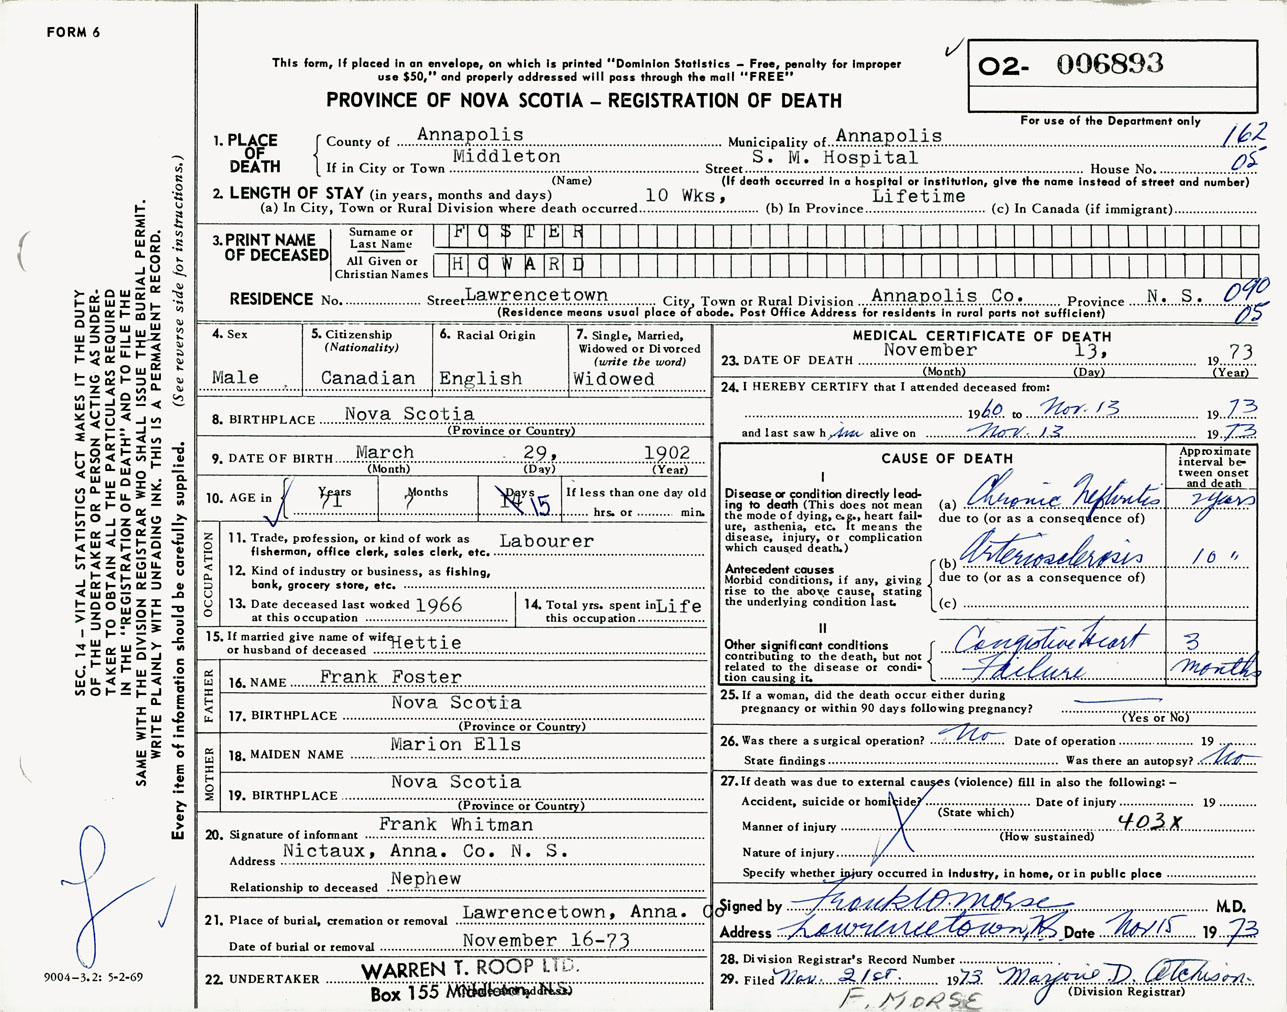 FORM 6
This form, if placed in an envelope, on which is printed "Dominion Statistics – Free, penalty for improper
use $50," and properly addressed will pass through the mail "FREE"
PROVINCE OF NOVA SCOTIA – REGISTRATION OF DEATH
O2- 006893
For use of the Department only
1. PLACE OF DEATH
County of Annapolis Municipality of Annapolis 162
If in City or Town Middleton Street S. M. Hospital House No. 05
(Name) (If death occurred in a hospital or institution, give the name instead of street and number)
2. LENGTH OF STAY (in years, months and days)
(a) In City, Town or Rural Division where death occurred 10 Wks, (b) In Province Lifetime (c) In Canada (if immigrant)
3. PRINT NAME OF DECEASED
Surname or Last Name FOSTER
All Given or Christian Names HOWARD
RESIDENCE No. Street Lawrencetown City, Town or Rural Division Annapolis Co. Province N. S. 090
(Residence means usual place of abode. Post Office Address for residents in rural parts not sufficient) 05
4. Sex
Male
5. Citizenship
(Nationality)
Canadian
6. Racial Origin
English
7. Single, Married,
Widowed or Divorced
(write the word)
Widowed
8. BIRTHPLACE Nova Scotia
(Province or Country)
9. DATE OF BIRTH March 29, 1902
(Month) (Day) (Year)
10. AGE in Years Months Days If less than one day old
71 14 15 hrs. or min.
OCCUPATION
11. Trade, profession, or kind of work as
fisherman, office clerk, sales clerk, etc. Labourer
12. Kind of industry or business, as fishing,
bank, grocery store, etc.
13. Date deceased last worked 1966
at this occupation
14. Total yrs. spent in Life
this occupation
15. If married give name of wife
or husband of deceased Hettie
FATHER
16. NAME Frank Foster
17. BIRTHPLACE Nova Scotia
(Province or Country)
MOTHER
18. MAIDEN NAME Marion Ells
19. BIRTHPLACE Nova Scotia
(Province or Country)
20. Signature of informant Frank Whitman
Address Nictaux, Anna. Co. N. S.
Relationship to deceased Nephew
21. Place of burial, cremation or removal Lawrencetown, Anna. Co
Date of burial or removal November 16-73
22. UNDERTAKER WARREN T. ROOP LTD.
Box 155 Middleton, N.S.
MEDICAL CERTIFICATE OF DEATH
23. DATE OF DEATH November 13, 1973
(Month) (Day) (Year)
24. I HEREBY CERTIFY that I attended deceased from:
1960 to Nov. 13 1973
and last saw him alive on Nov. 13 1973
CAUSE OF DEATH
Approximate
interval be-
tween onset
and death
I
Disease or condition directly lead-
ing to death (This does not mean
the mode of dying, e.g., heart fail-
ure, asthenia, etc. It means the
disease, injury, or complication
which caused death.)
(a) Chronic Nephritis 2 years
due to (or as a consequence of)
Antecedent causes
Morbid conditions, if any, giving
rise to the above cause, stating
the underlying condition last.
(b) Arteriosclerosis 10 "
due to (or as a consequence of)
(c)
II
Other significant conditions
contributing to the death, but not
related to the disease or condi-
tion causing it.
Congestive Heart 3
Failure months
25. If a woman, did the death occur either during
pregnancy or within 90 days following pregnancy?
(Yes or No)
26. Was there a surgical operation? No Date of operation 19
State findings Was there an autopsy? No
27. If death was due to external causes (violence) fill in also the following: –
Accident, suicide or homicide? Date of injury 19
(State which)
Manner of injury 403X
(How sustained)
Nature of injury
Specify whether injury occurred in industry, in home, or in public place
Signed by Frank W. Morse M.D.
Address Lawrencetown, NS Date Nov 15 1973
28. Division Registrar's Record Number
29. Filed Nov. 21st. 1973 Marjorie D. Atchison
(Division Registrar)
F. MORSE
SEC. 14 – VITAL STATISTICS ACT MAKES IT THE DUTY
OF THE UNDERTAKER OR PERSON ACTING AS UNDER-
TAKER TO OBTAIN ALL THE PARTICULARS REQUIRED
IN THE "REGISTRATION OF DEATH" AND TO FILE THE
SAME WITH THE DIVISION REGISTRAR WHO SHALL ISSUE THE BURIAL PERMIT.
WRITE PLAINLY WITH UNFADING INK. THIS IS A PERMANENT RECORD.
Every item of information should be carefully supplied. (See reverse side for instructions.)
9004-3.2: 5-2-69